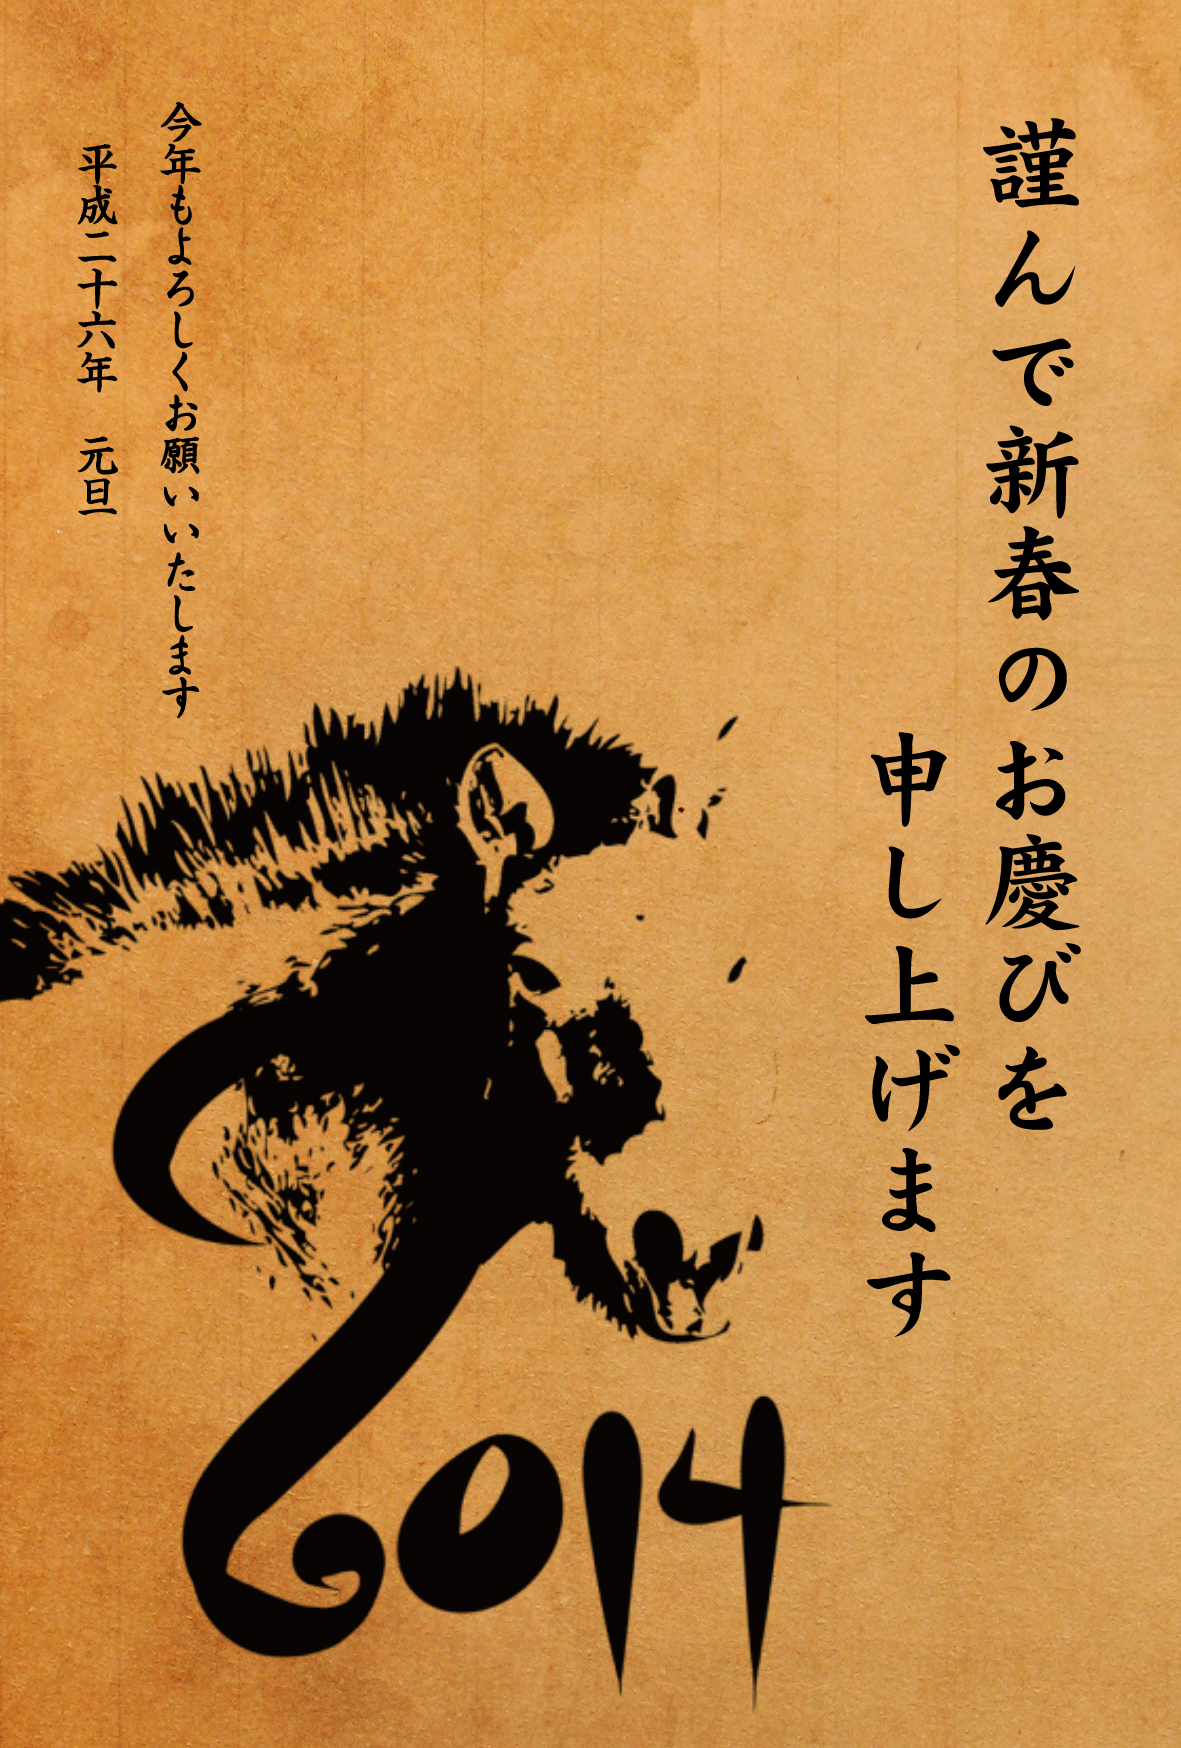 謹んで新春のお慶びを
申し上げます
今年もよろしくお願いいたします
平成二十六年　元旦
2014